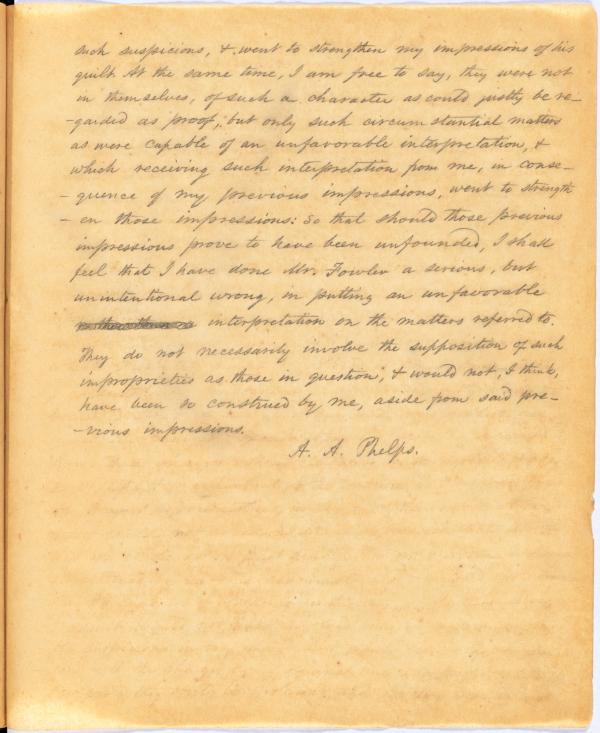 such suspicions, & went to strengthen my impressions of his
guilt. At the same time, I am free to say, they were not
in themselves, of such a character as could justly be re-
-garded as proof; but only such circumstantial matters
as were capable of an unfavorable interpretation, &
which receiving such interpretation from me, in conse-
-quence of my previous impressions, went to strength-
-en those impressions: So that should those previous
impressions prove to have been unfounded, I shall
feel that I have done Mr. Fowler a serious, but
unintentional wrong, in putting an unfavorable
interpretation on the matters referred to.
They do not necessarily involve the supposition of such
improprieties as those in question; & would not, I think,
have been so construed by me, aside from said pre-
-vious impressions.
A. A. Phelps.